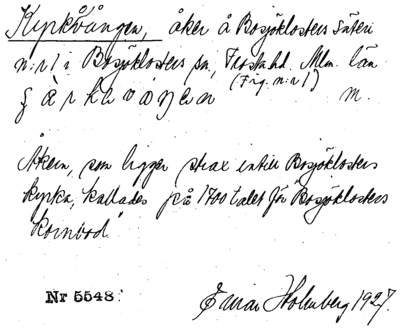 Kyrkvången, åker å Bosjöklosters säteri
n:r 1 i Bosjöklosters sn, Frosta hd. Mlm. län
(Frg. n:r 1)
m.
Åkern, som ligger strax intill Bosjöklosters
kyrka, kallades på 1700 talet för "Bosjöklosters
kornbod".
Nr 5548.
Einar Holmberg 1927.